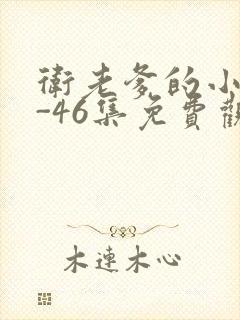 衛老爹的小
-46集免費觀
木連木心